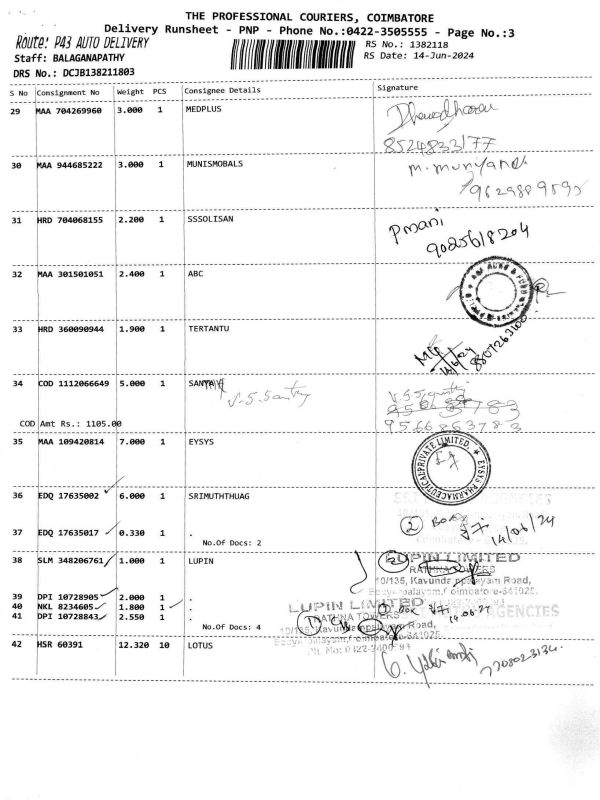 THE PROFESSIONAL COURIERS, COIMBATORE
Delivery Runsheet - PNP - Phone No.:0422-3505555 - Page No.:3
Route: P43 AUTO DELIVERY
RS No.: 1382118
Staff: BALAGANAPATHY
RS Date: 14-Jun-2024
DRS No.: DCJB138211803
S No Consignment No Weight PCS Consignee Details Signature
29 MAA 704269960 3.000 1 MEDPLUS
8524833177
30 MAA 944685222 3.000 1 MUNISMOBALS
31 HRD 704068155 2.200 1 SSSOLISAN
Pmani
32 MAA 301501051 2.400 1 ABC
33 HRD 360090944 1.900 1 TERTANTU
34 COD 1112066649 5.000 1
COD Amt Rs.: 1105.00
9566863783
35 MAA 109420814 7.000 1 EYSYS
EYSYS PHARMACEUTICAL PRIVATE LIMITED.
36 EDQ 17635002 6.000 1 SRIMUTHTHUAG
2 Box 14/06/24
37 EDQ 17635017 0.330 1 .
No.Of Docs: 2
38 SLM 348206761 1.000 1 LUPIN
LUPIN LIMITED
RATHNA TOWERS
10/135, Kavundampalayam Road,
39 DPI 10728905 2.000 1 .
40 NKL 8234605 1.800 1 .
41 DPI 10728843 2.550 1 .
LUPIN LIMITED
RATHNA TOWERS
AGENCIES
No.Of Docs: 4
42 HSR 60391 12.320 10 LOTUS